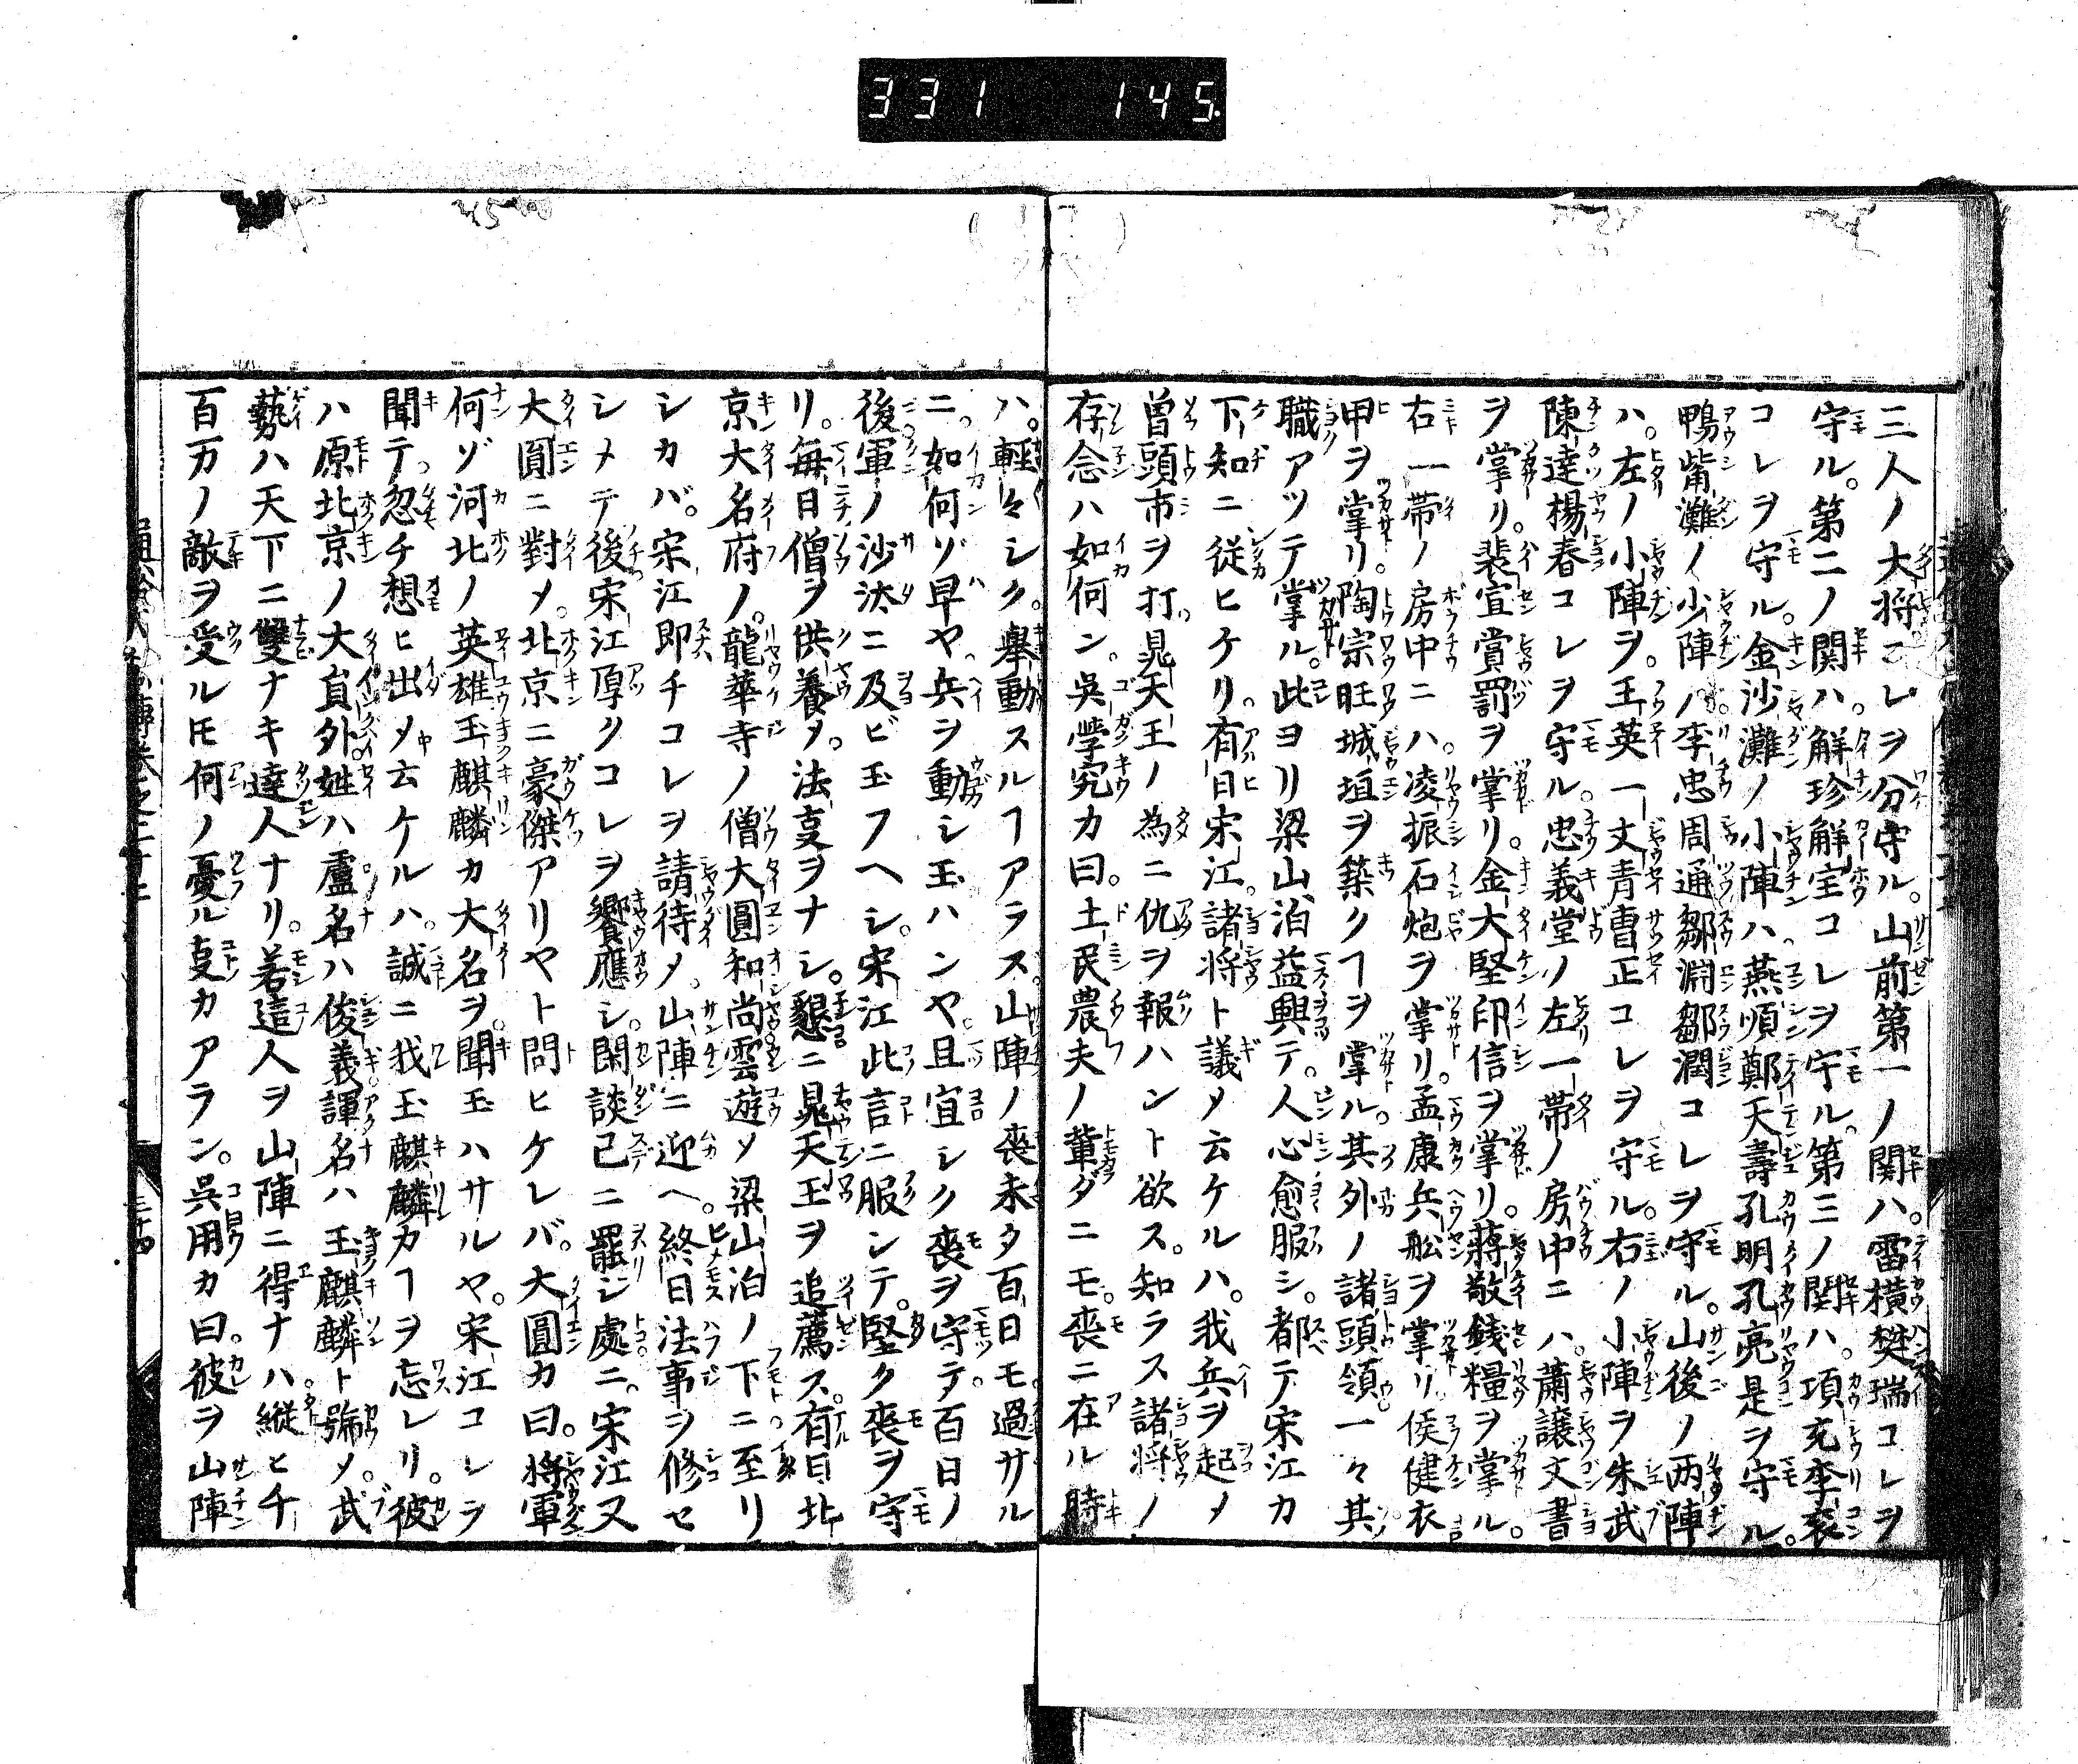 331 145.
三人ノ大将コレヲ分守ル。山前第一ノ関ハ。雷横樊瑞コレヲ
守ル。第二ノ関ハ。解珍解宝コレヲ守ル。第三ノ関ハ。項充李袞
コレヲ守ル。金沙灘ノ小陣ハ。燕順鄭天壽孔明孔亮是ヲ守ル。
鴨觜灘ノ少陣ハ。李忠周通鄒淵鄒潤コレヲ守ル。山後ノ両陣
ハ。左ノ小陣ヲ。王英一丈青曹正コレヲ守ル。右ノ小陣ヲ朱武
陳達楊春コレヲ守ル。忠義堂ノ左一帯ノ房中ニハ。蕭譲文書
ヲ掌リ。裴宣賞罰ヲ掌リ。金大堅印信ヲ掌リ。蒋敬銭糧ヲ掌ル。
右一帯ノ房中ニハ。凌振石炮ヲ掌リ。孟康兵舩ヲ掌リ。侯健衣
甲ヲ掌リ。陶宗旺城垣ヲ築クヿヲ掌ル。其外ノ諸頭領。一々其
職アツテ掌ル。此ヨリ梁山泊益興テ。人心愈服シ。都テ宋江カ
下知ニ従ヒケリ。有日宋江。諸将ト議メ云ケルハ。我兵ヲ起メ
曽頭市ヲ打。晁天王ノ為ニ仇ヲ報ハント欲ス。知ラス諸将ノ
存念ハ如何ン。呉學究カ曰。土民農夫ノ輩ダニモ。喪ニ在ル時
ハ。軽々シク。擧動スルヿアラス。山陣ノ喪未タ百日モ過サル
ニ。如何ゾ早ヤ。兵ヲ動シ玉ハンヤ。且宜シク喪ヲ守テ。百日ノ
後。軍ノ沙汰ニ及ビ玉フヘシ。宋江此言ニ服シテ。堅ク喪ヲ守
リ。毎日僧ヲ供養メ。法叓ヲナシ。懇ニ晁天王ヲ追薦ス。有日北
京大名府ノ。龍華寺ノ僧大圓和尚雲遊メ梁山泊ノ下ニ至リ
シカバ。宋江即チコレヲ請待メ。山陣ニ迎ヘ。終日法事ヲ修セ
シメテ後宋江厚クコレヲ饗應シ。閑談已ニ罷シ處ニ。宋江又
大圓ニ對メ。北京ニ豪傑アリヤト問ヒケレバ。大圓カ曰。将軍
何ゾ河北ノ英雄玉麒麟カ大名ヲ。聞玉ハサルヤ。宋江コレヲ
聞テ。忽チ想ヒ出メ云ケルハ。誠ニ我玉麒麟カヿヲ忘レリ。彼
ハ原北京ノ大員外。姓ハ盧名ハ俊義諢名ハ玉麒麟ト號メ。武
藝ハ天下ニ雙ナキ達人ナリ。若這人ヲ山陣ニ得ナハ。縦ヒ千
百万ノ敵ヲ受ルモ何ノ憂ル叓カアラン。呉用カ曰。彼ヲ山陣